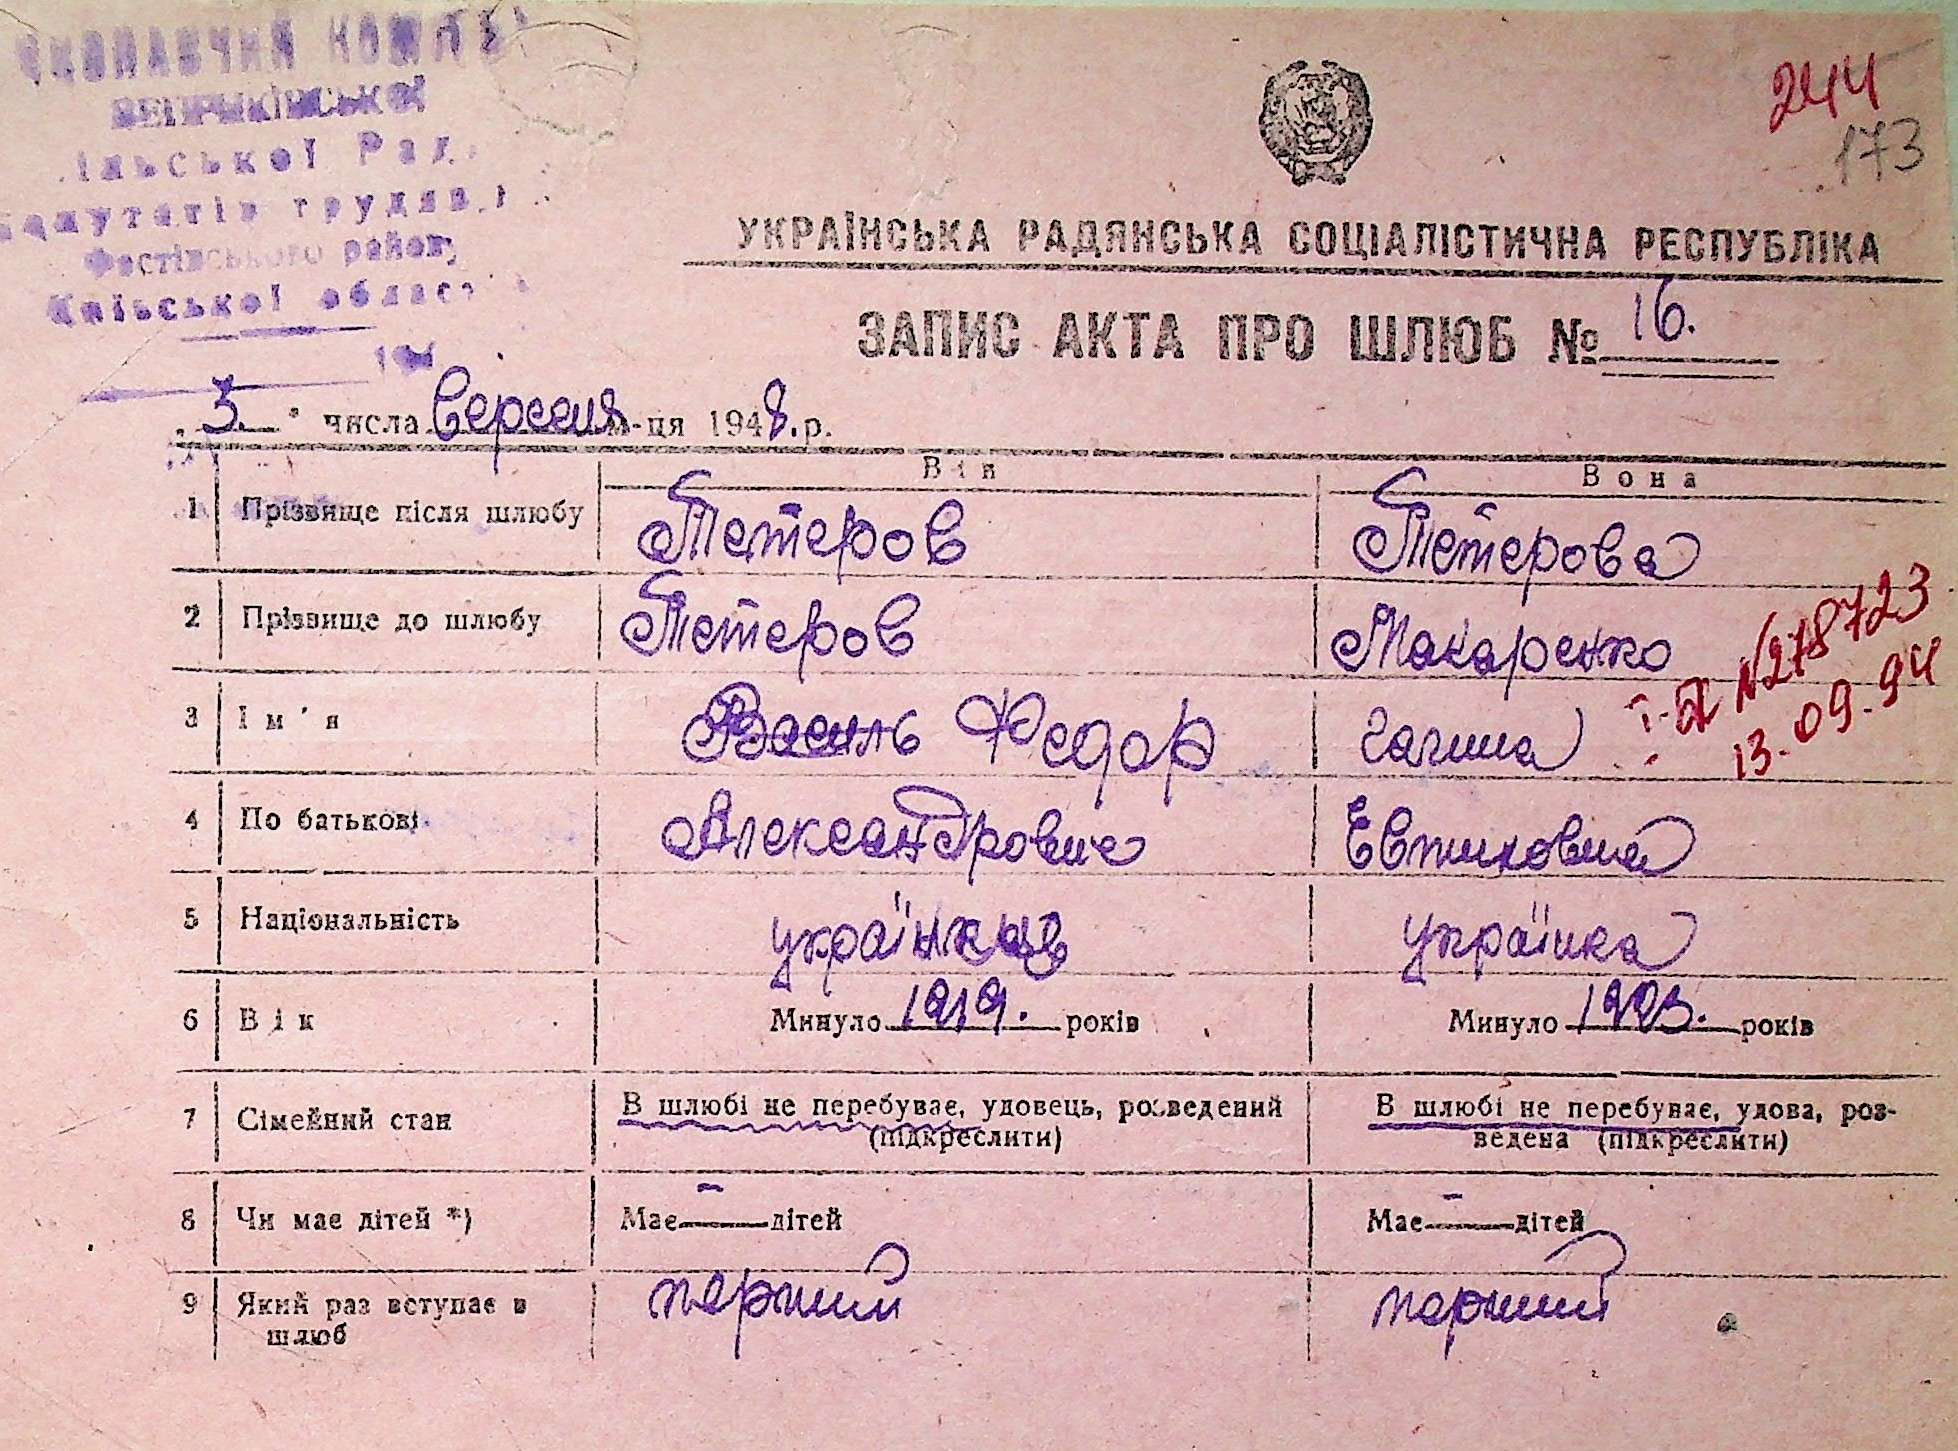 ВЕПРИКІВСЬКОЇ
ільської Рад
депутатів трудящ
Фастівського району
Київської област
194
244
173
УКРАЇНСЬКА РАДЯНСЬКА СОЦІАЛІСТИЧНА РЕСПУБЛІКА
ЗАПИС АКТА ПРО ШЛЮБ № 16.
„ 3. " числа Вересня м-ця 1948. р.
Він Вона
1 Прізвище після шлюбу Тетеров Тетерова
2 Прізвище до шлюбу Тетеров Макаренко
3 Ім'я Василь Федор Галина
І-БК №278723
13.09.94
4 По батькові Александрович Евтиховна
5 Національність українець українка
6 Вік Минуло 1919. років Минуло 1923. років
7 Сімейний стан В шлюбі не перебуває, удовець, розведений В шлюбі не перебуває, удова, роз-
(підкреслити) ведена (підкреслити)
8 Чи має дітей *) Має — дітей Має — дітей
9 Який раз вступає в перший перший
шлюб